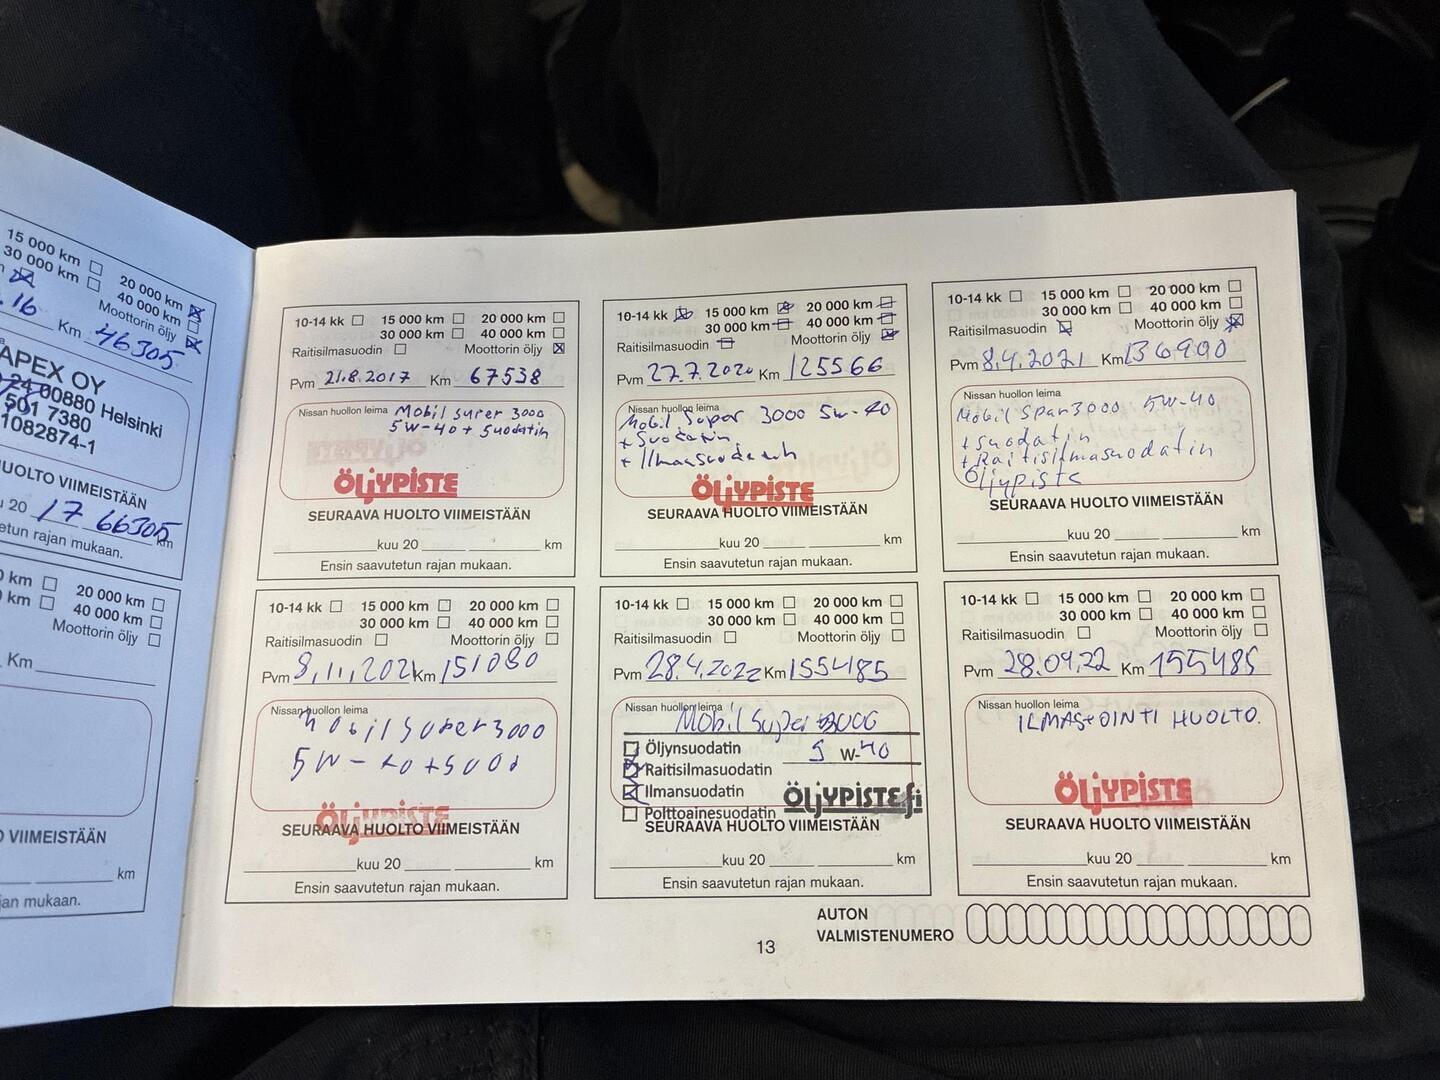 15 000 km
20 000 km
30 000 km
40 000 km
Moottorin öljy
.16 Km 46305
APEX OY
24 00880 Helsinki
501 7380
1082874-1
HUOLTO VIIMEISTÄÄN
u 20 17 66305 km
etun rajan mukaan.
0 km 20 000 km
0 km 40 000 km
Moottorin öljy
Km
O VIIMEISTÄÄN
km
jan mukaan.
10-14 kk 15 000 km 20 000 km
30 000 km 40 000 km
Raitisilmasuodin Moottorin öljy
Pvm 21.8.2017 Km 67538
Nissan huollon leima Mobil super 3000
5W-40 + Suodatin
ÖLJYPISTE
SEURAAVA HUOLTO VIIMEISTÄÄN
kuu 20 km
Ensin saavutetun rajan mukaan.
10-14 kk 15 000 km 20 000 km
30 000 km 40 000 km
Raitisilmasuodin Moottorin öljy
Pvm 27.7.2020 Km 125566
Nissan huollon leima
Mobil Super 3000 5w-40
+ Suodatin
+ Ilmansuodatin
ÖLJYPISTE
SEURAAVA HUOLTO VIIMEISTÄÄN
kuu 20 km
Ensin saavutetun rajan mukaan.
10-14 kk 15 000 km 20 000 km
30 000 km 40 000 km
Raitisilmasuodin Moottorin öljy
Pvm 8.4.2021 Km 136990
Nissan huollon leima
Mobil Spar 3000 5W-40
+ suodatin
+ Raitisilmasuodatin
Öljypiste
SEURAAVA HUOLTO VIIMEISTÄÄN
kuu 20 km
Ensin saavutetun rajan mukaan.
10-14 kk 15 000 km 20 000 km
30 000 km 40 000 km
Raitisilmasuodin Moottorin öljy
Pvm 8.11.2021 Km 151080
Nissan huollon leima
Mobil Super 3000
5W-40 + Suod
ÖLJYPISTE
SEURAAVA HUOLTO VIIMEISTÄÄN
kuu 20 km
Ensin saavutetun rajan mukaan.
10-14 kk 15 000 km 20 000 km
30 000 km 40 000 km
Raitisilmasuodin Moottorin öljy
Pvm 28.4.2022 Km 155485
Nissan huollon leima
Mobil Super 3000
Öljynsuodatin 5 W-40
Raitisilmasuodatin
Ilmansuodatin ÖLJYPISTE.fi
Polttoainesuodatin
SEURAAVA HUOLTO VIIMEISTÄÄN
kuu 20 km
Ensin saavutetun rajan mukaan.
10-14 kk 15 000 km 20 000 km
30 000 km 40 000 km
Raitisilmasuodin Moottorin öljy
Pvm 28.04.22 Km 155485
Nissan huollon leima
ILMASTOINTI HUOLTO.
ÖLJYPISTE
SEURAAVA HUOLTO VIIMEISTÄÄN
kuu 20 km
Ensin saavutetun rajan mukaan.
AUTON
VALMISTENUMERO
13